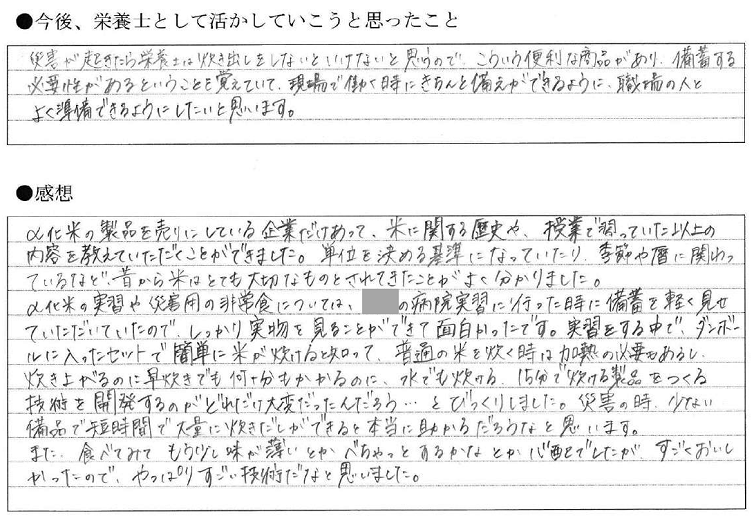 ●今後、栄養士として活かしていこうと思ったこと
災害が起きたら栄養士は炊き出しをしないといけないと思うので、こういう便利な商品があり、備蓄する
必要性があるということを覚えていて、現場で働く時にきちんと備えができるように、職場の人と
よく準備できるようにしたいと思います。
●感想
α化米の製品を売りにしている企業だけあって、米に関する歴史や、授業で習っていた以上の
内容を教えていただくことができました。単位を決める基準になっていたり、季節や暦に関わっ
ているなど、昔から米はとても大切なものとされてきたことがよく分かりました。
α化米の実習や災害用の非常食については、の病院実習に行った時に備蓄を軽く見せ
ていただいていたので、しっかり実物を見ることができて面白かったです。実習をする中で、ダンボー
ルに入ったセットで簡単に米が炊けると知って、普通の米を炊く時は加熱の必要もあるし、
炊き上がるのに早炊きでも何十分もかかるのに、水でも炊ける、15分で炊ける製品をつくる
技術を開発するのがどれだけ大変だったんだろう…とびっくりしました。災害の時、少ない
備品で短時間で大量に炊きだしができると本当に助かるだろうなと思います。
また、食べてみてもう少し味が薄いとかべちゃっとするかなとか心配でしたが、すごくおいし
かったので、やっぱりすごい技術だなと思いました。